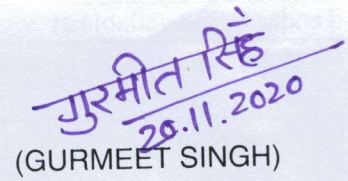 गुरमीत सिंह
20.11.2020
(GURMEET SINGH)